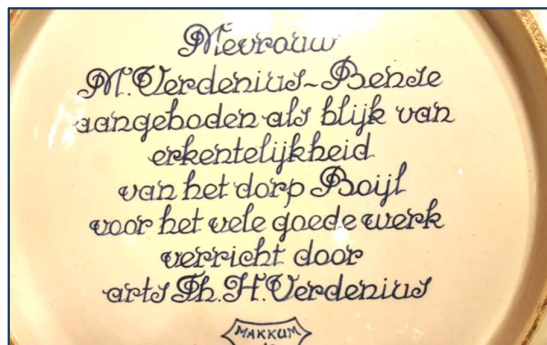 Mevrouw
M. Verdenius-Bense
aangeboden als blijk van
erkentelijkheid
van het dorp Boijl
voor het vele goede werk
verricht door
arts Th. H. Verdenius
MAKKUM